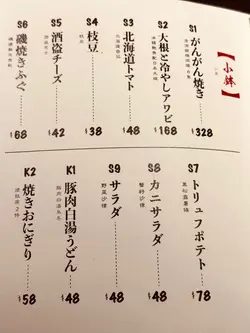 【小鉢】
S1
がんがん焼き
$328
S2
大根と冷やしアワビ
$168
S3
北海道トマト
$48
S4
枝豆
$38
S5
酒盗チーズ
$42
S6
磯焼きふぐ
$68
S7
トリュフポテト
黑松露薯條
$78
S8
カニサラダ
蟹籽沙律
$48
S9
サラダ
野菜沙律
$48
K1
豚肉白湯うどん
$48
K2
焼きおにぎり
$58